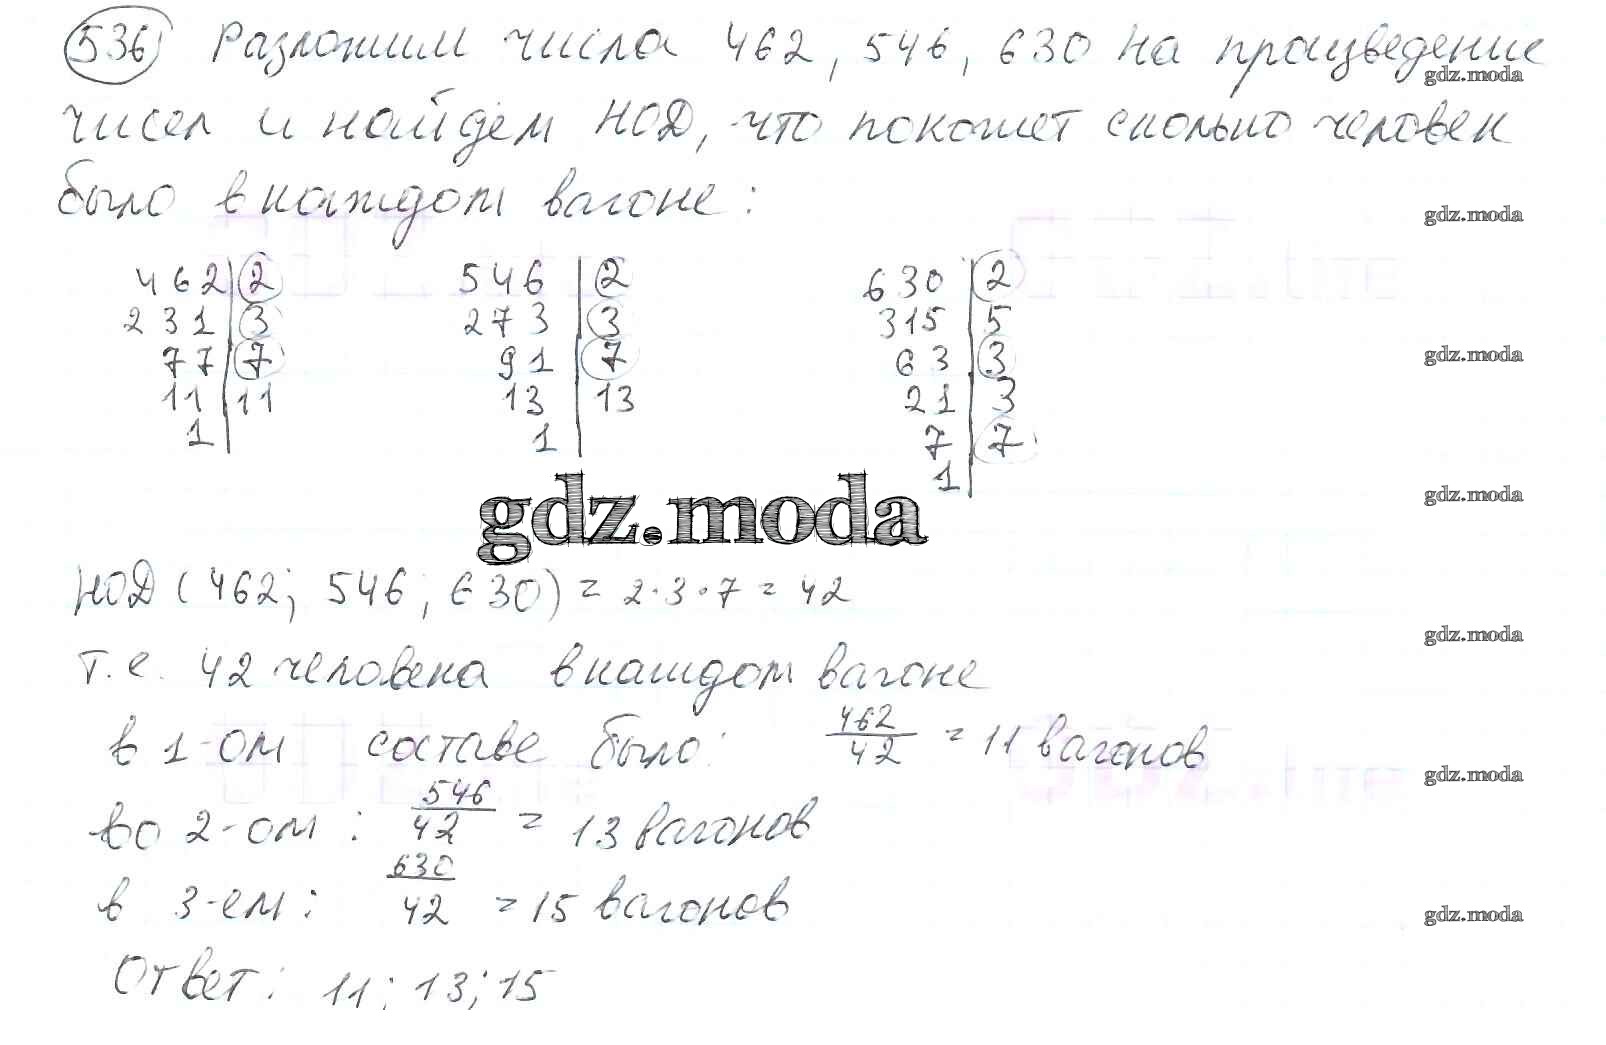 536) Разложим числа 462, 546, 630 на произведение
gdz.moda
чисел и найдем НОД, что покажет сколько человек
было в каждом вагоне:
gdz.moda
462 | 2   546 | 2   630 | 2
231 | 3   273 | 3   315 | 5
77 | 7   91 | 7   63 | 3
gdz.moda
11 | 11   13 | 13   21 | 3
1   1   7 | 7
1
gdz.moda
gdz.moda
НОД (462; 546; 630) = 2·3·7 = 42
gdz.moda
т.е. 42 человека в каждом вагоне
в 1-ом составе было: 462/42 = 11 вагонов
gdz.moda
во 2-ом: 546/42 = 13 вагонов
в 3-ем: 630/42 = 15 вагонов
gdz.moda
Ответ: 11; 13; 15